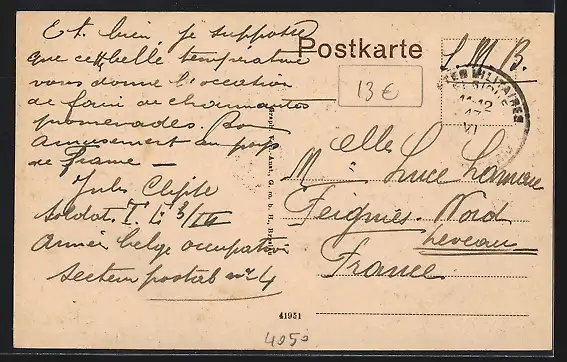 Et bien je suppose
que cette belle température
vous donne l'occasion
de faire de charmantes
promenades. Bon
amusement au pays
de France —
Jules
Soldat T. 3/III
Armée belge occupation
Secteur postal nr 4
Postkarte
S. M. B.
13 €
POSTES MILITAIRES
11-12
VI
Melle Luce
Feignies. Nord
France
41951
4050